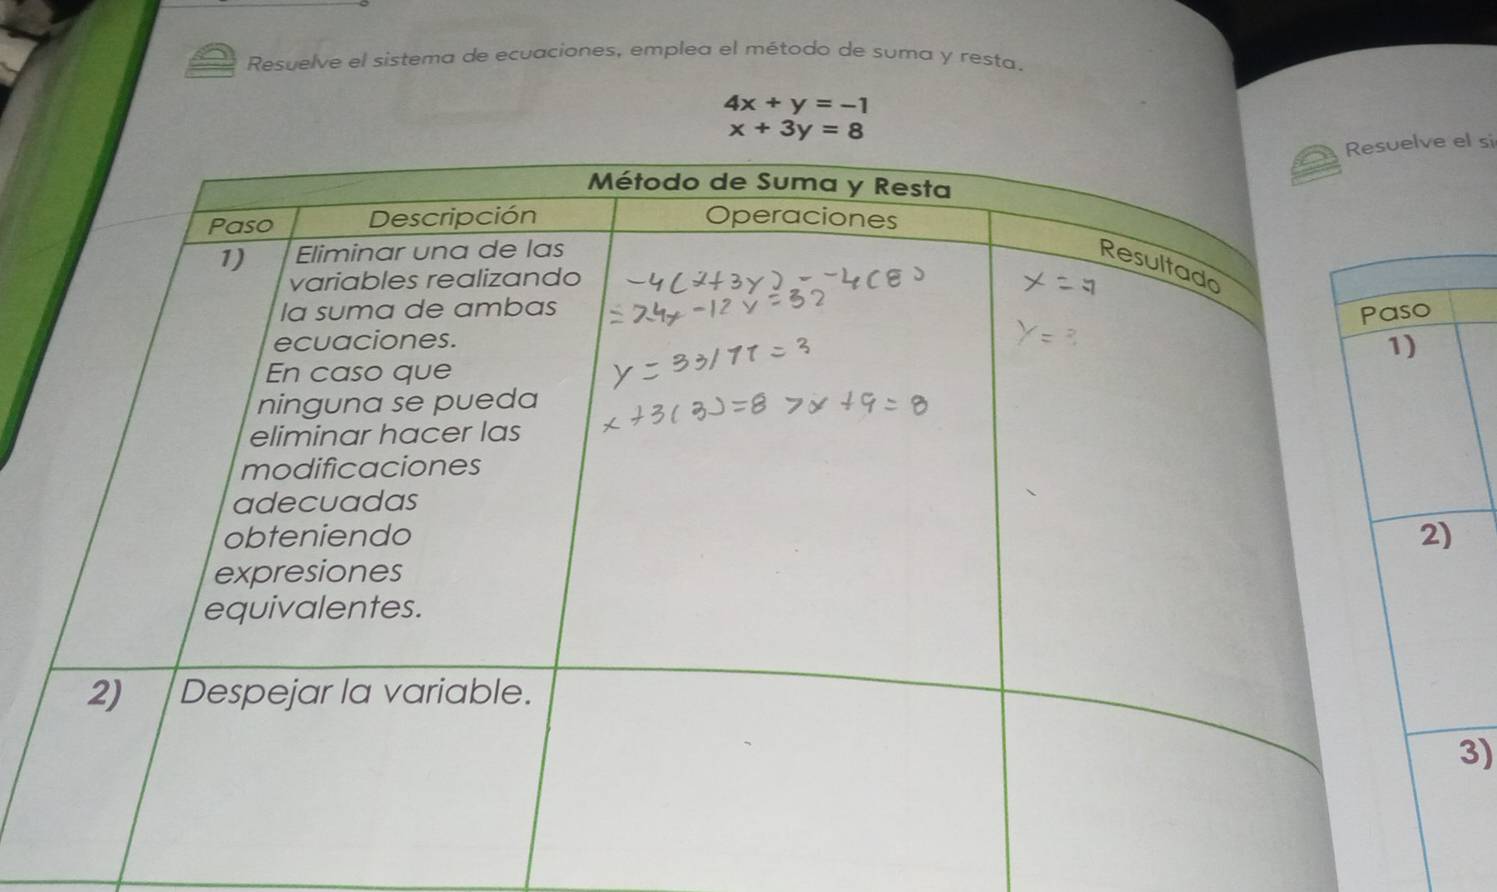 Resuelve el sistema de ecuaciones, emplea el método de suma y resta.
4x + y = -1
x + 3y = 8
Método de Suma y Resta
Paso Descripción Operaciones Resultado
1) Eliminar una de las
variables realizando
la suma de ambas
ecuaciones.
En caso que
ninguna se pueda
eliminar hacer las
modificaciones
adecuadas
obteniendo
expresiones
equivalentes.
-4(x+3y) = -4(8)
-12y = 32
y = 33/11 = 3
x+3(3)=8 > x+9=8
x =
y = 3
2) Despejar la variable.
Resuelve el si
Paso
1)
2)
3)